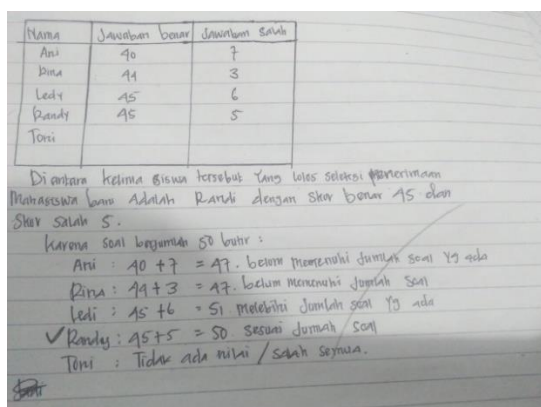 Nama Jawaban benar Jawaban Salah
Ani 40 7
Dina 44 3
Ledy 45 6
Randy 45 5
Toni
Diantara kelima siswa tersebut yang lolos seleksi penerimaan
Mahasiswa baru Adalah Randi dengan skor benar 45 dan
Skor salah 5.
Karena soal berjumlah 50 butir :
Ani : 40 + 7 = 47. belum memenuhi jumlah soal yg ada
Dina : 44 + 3 = 47. belum memenuhi Jumlah Soal
Ledi : 45 + 6 = 51 melebihi Jumlah soal yg ada
✓ Randy : 45 + 5 = 50. sesuai Jumlah soal
Toni : Tidak ada nilai / salah semua.